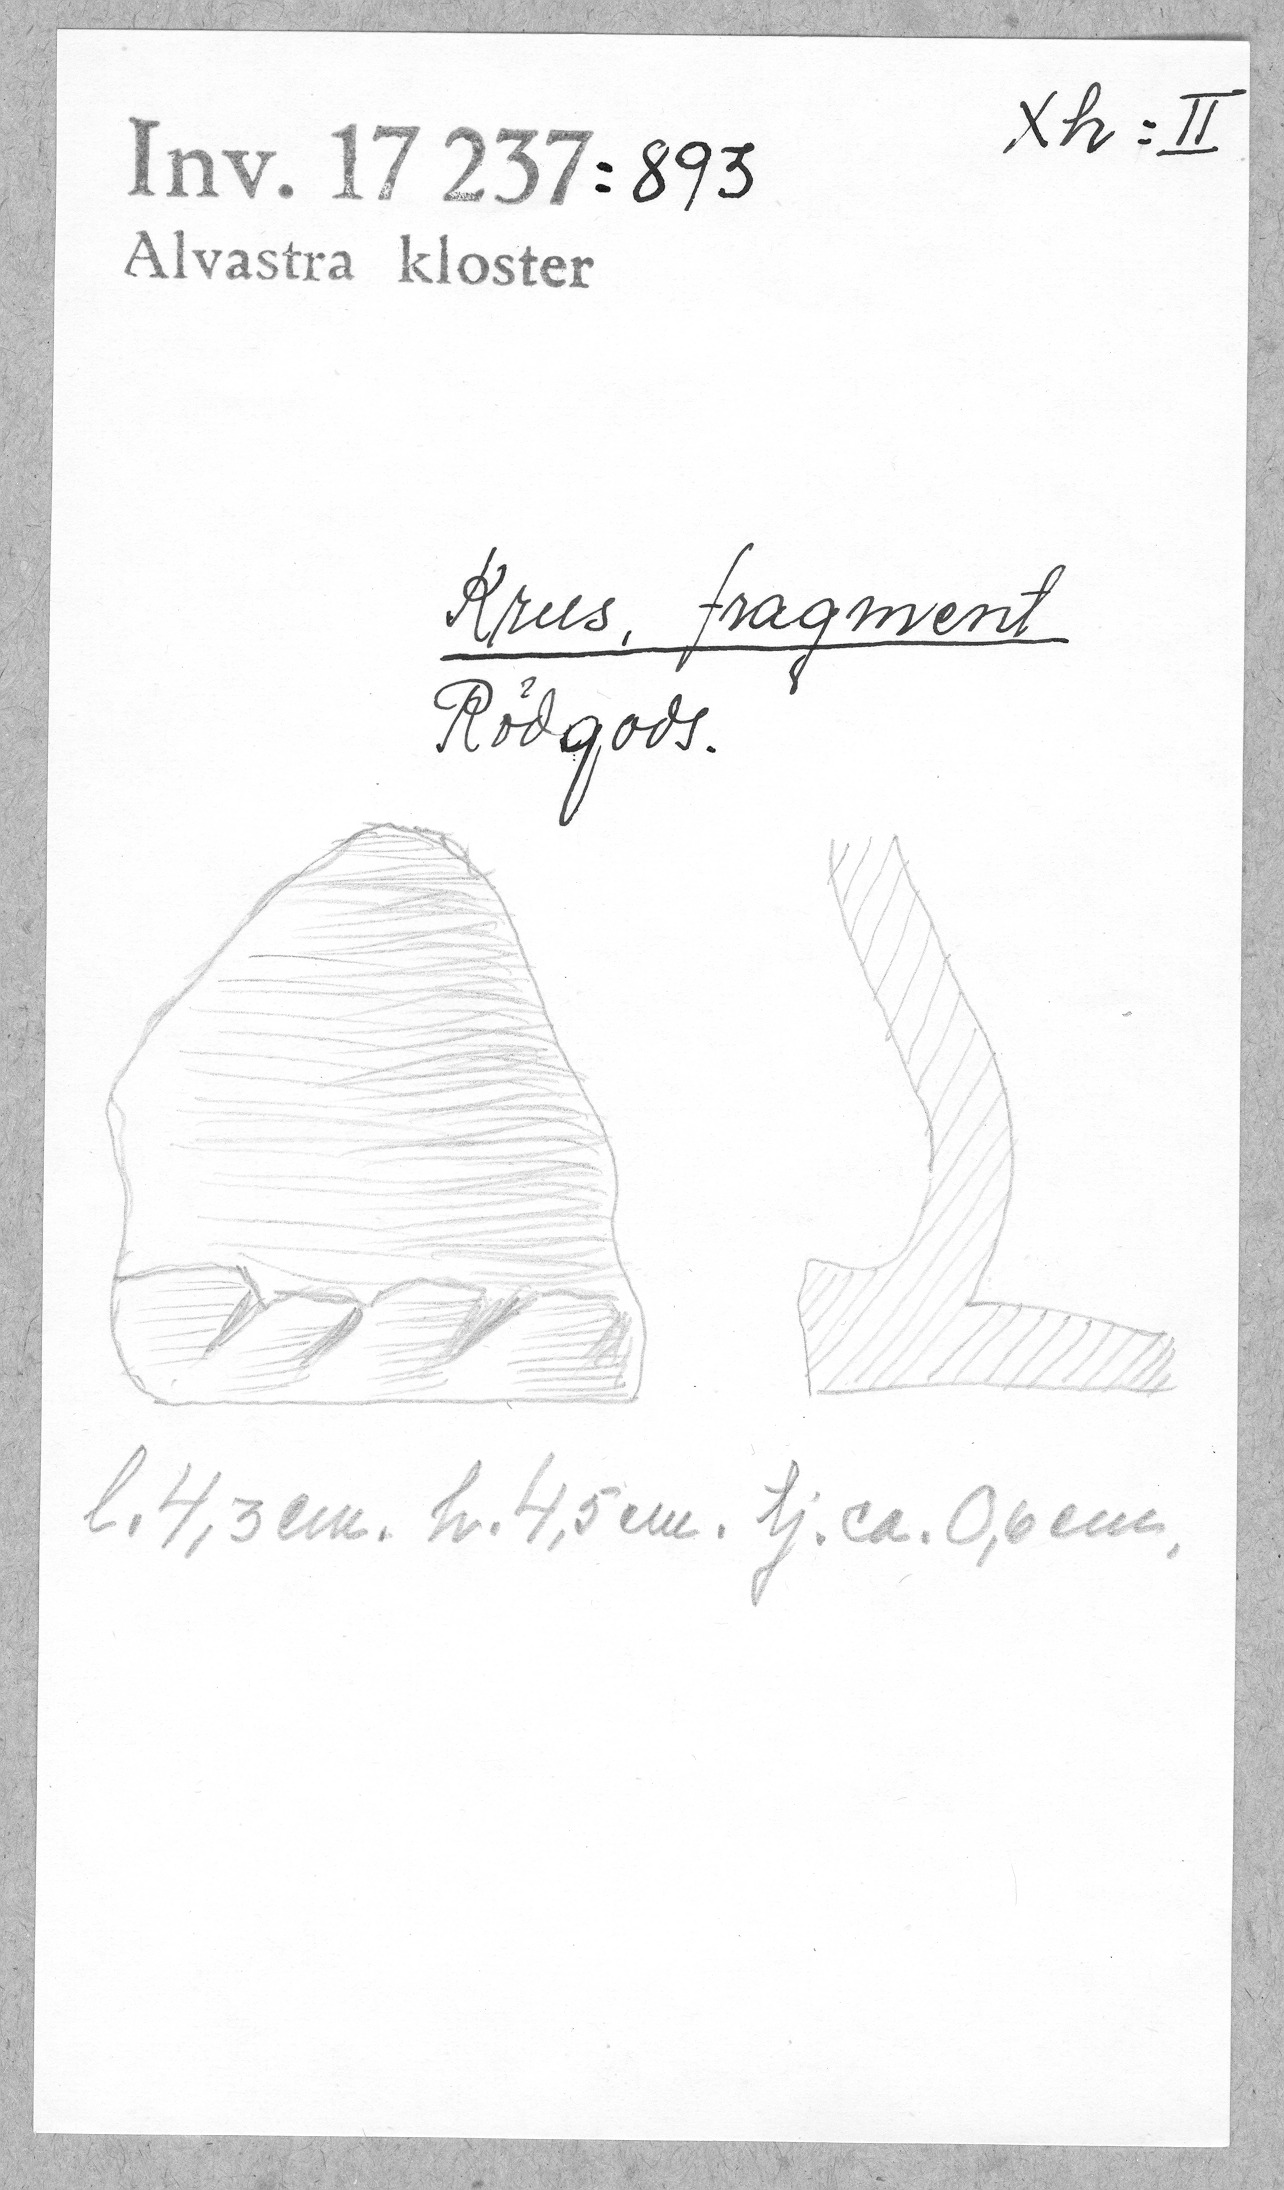 Inv. 17 237:893
Xh:II
Alvastra kloster
Krus, fragment
Rödgods.
l. 4,3 cm. h. 4,5 cm. tj. ca. 0,6 cm.